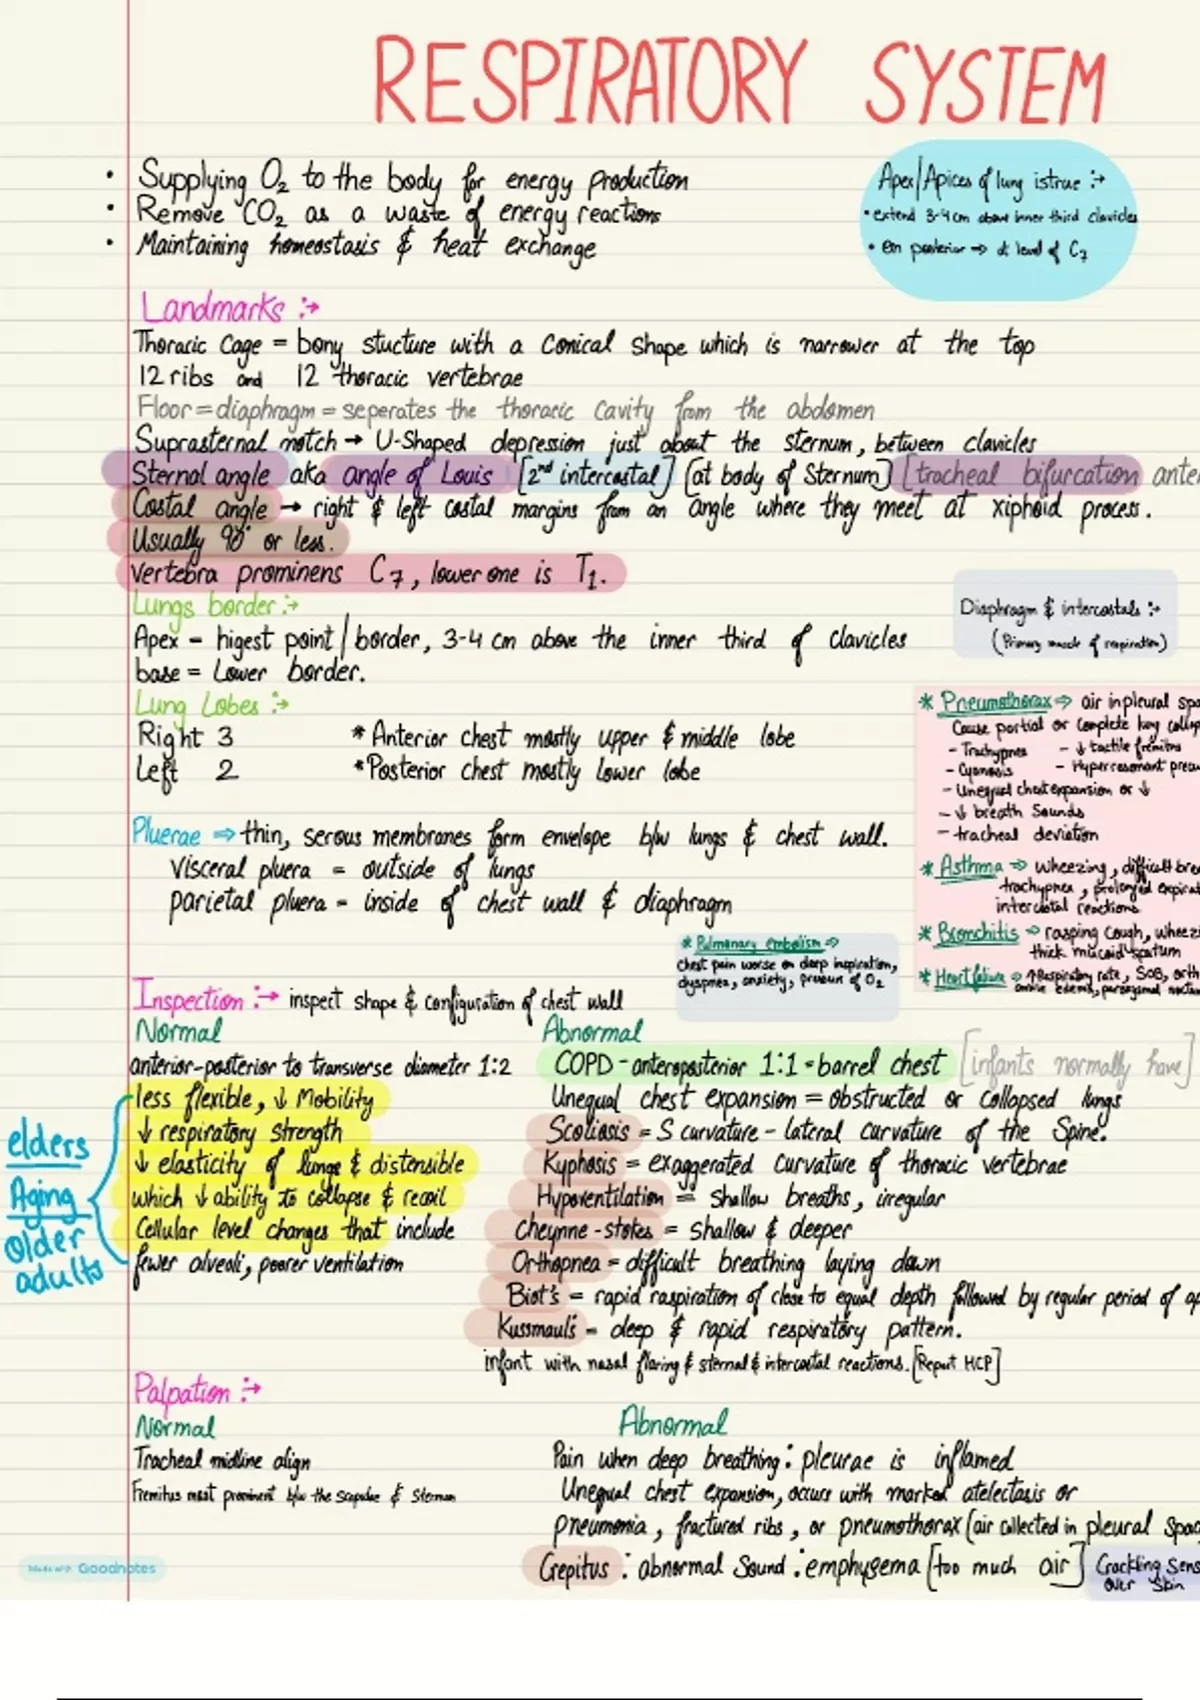 RESPIRATORY SYSTEM
• Supplying O₂ to the body for energy production
• Remove CO₂ as a waste of energy reactions
• Maintaining homeostasis & heat exchange
Apex/Apices of lung
• extend 3-4 cm above inner third clavicles
• posterior → at level of C7
Landmarks :→
Thoracic Cage = bony stucture with a Conical Shape which is narrower at the top
12 ribs and 12 thoracic vertebrae
Floor = diaphragm = seperates the thoracic cavity from the abdomen
Suprasternal notch → U-Shaped depression just about the sternum, between clavicles
Sternal angle aka angle of Louis [2nd intercostal] [at body of Sternum] [tracheal bifurcation ante
Costal angle → right & left costal margins from an angle where they meet at xiphoid process.
Usually 90° or less.
Vertebra prominens C7, lower one is T1.
Lungs border :→
Apex - higest point / border, 3-4 cm above the inner third of clavicles
base = Lower border.
Diaphragm & intercostals :→
(Primary muscle of respiration)
Lung Lobes :→
Right 3 * Anterior chest mostly upper & middle lobe
Left 2 * Posterior chest mostly lower lobe
* Pneumothorax ⇒ air in pleural spa
Cause partial or complete lung collap
- Trachypnea - ↓ tactile fremitus
- Cyanosis - Hyperresonant
- Unequal chest expansion or ↓
- ↓ breath Sounds
- tracheal deviation
* Asthma ⇒ wheezing, difficult brea
trachypnea, prolonged expirat
intercostal reactions
* Bronchitis ⇒ rasping cough, wheezi
thick mucoid sputum
* Heart failure ⇒ ↑ Respiratory rate, SOB, orth
ankle edema,
Pluerae ⇒ thin, serous membranes form envelope b/w lungs & chest wall.
Visceral pluera = outside of lungs
parietal pluera = inside of chest wall & diaphragm
* Pulmonary embolism ⇒
chest pain worse on deep inspiration,
dyspnea, anxiety, of O₂
Inspection :→ inspect shape & configuration of chest wall
Normal
anterior-posterior to transverse diameter 1:2
less flexible, ↓ Mobility
↓ respiratory strength
↓ elasticity of lungs & distensible
which ↓ ability to collapse & recoil
Cellular level changes that include
fewer alveoli, poorer ventilation
elders
Aging
older
adults
Abnormal
COPD - anteroposterior 1:1 = barrel chest [infants normally have]
Unequal chest expansion = obstructed or collapsed lungs
Scoliosis = S curvature - lateral curvature of the Spine.
Kyphosis = exaggerated curvature of thoracic vertebrae
Hypoventilation = shallow breaths, irregular
Cheynne-stokes = shallow & deeper
Orthopnea = difficult breathing laying down
Biot's = rapid raspiration of close to equal depth followed by regular period of ap
Kussmaul's = deep & rapid respiratory pattern.
infant with nasal flaring & sternal & intercostal reactions. [Report HCP]
Palpation :→
Normal
Tracheal midline align
Fremitus most prominent b/w the Scapulae & Sternum
Abnormal
Pain when deep breathing : pleurae is inflamed
Unequal chest expansion, occurs with marked atelectasis or
pneumonia, fractured ribs, or pneumothorax (air collected in pleural spac
Crepitus : abnormal sound : emphysema [too much air]
Crackling sens
over skin
Made with Goodnotes